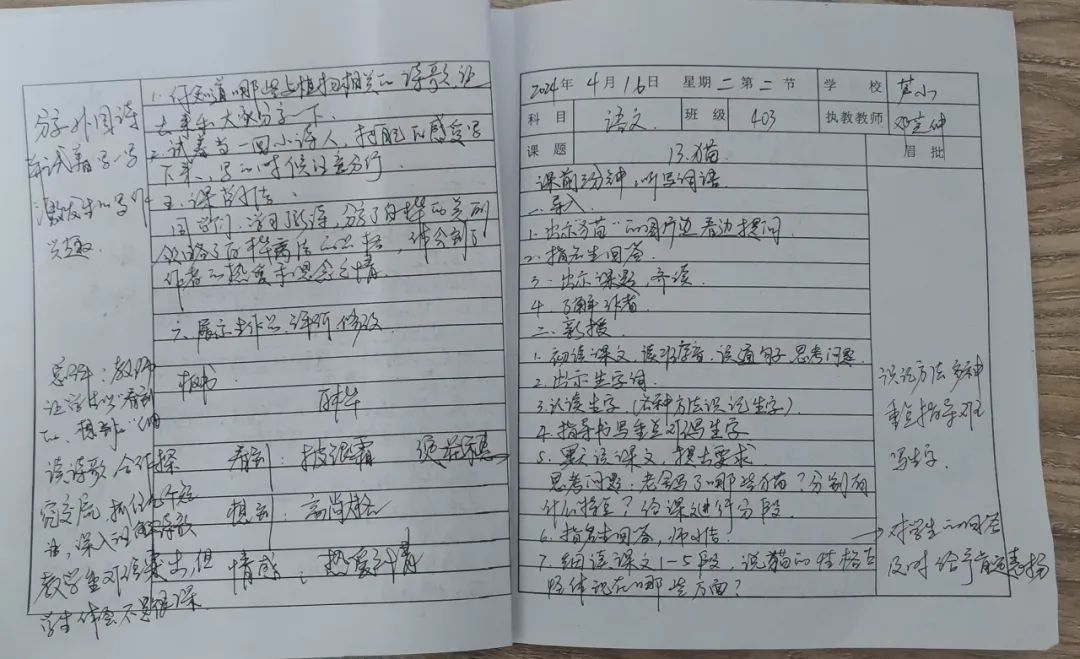 1. 你知道哪些与植物相关的诗歌,让
去来和大家分享一下
2. 试着当一回小诗人,把自己的感受写
下来,写的时候注意分行
五、课堂小结
同学们,学习了新诗,分享了白桦的美丽
领略了白桦高洁的品格,体会到了
作者的热爱和思念之情
六、展示生作品,评价修改
板书
白桦
看到:披银霜
想到:高尚
情感:热爱之情
分享外国诗
试着写一写
激发生的写作
兴趣
总评:教师
让学生以“看到
的、想到的”
读诗歌 合作探
究交流,抓住
深入
教学重难点突出,但
学生体会不是很深
2024年4月16日 星期二第二节 学校 芦小
科目 语文 班级 403 执教教师
课题 13.猫 眉批
课前三分钟,听写词语
一.导入
1.出示“猫”的图片边看边提问
2.指名生回答
3.出示课题,齐读
4.了解作者
二、新授
1.初读课文,读准字音,读通句子 思考问题
2.出示生字词
3.认读生字(各种方法识记生字)
4.指导书写重点难写生字
5.默读课文,提出要求
思考问题:老舍写了哪些猫?分别有
什么特点?给课文进行分段
6.指名生回答,师小结
7.细读课文1-5段,说猫的性格古
怪体现在哪些方面?
识记方法多种
重点指导难
写生字
对学生的回答
及时给予肯定表扬